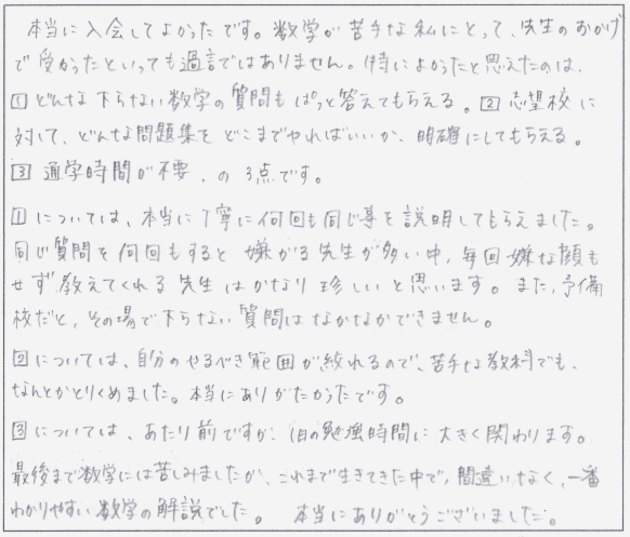 本当に入会してよかったです。数学が苦手な私にとって、先生のおかげ
で受かったといっても過言ではありません。特によかったと思えたのは、
1 どんな下らない数学の質問もぱっと答えてもらえる。2 志望校に
対して、どんな問題集をどこまでやればいいか、明確にしてもらえる。
3 通学時間が不要、の3点です。
1 については、本当に丁寧に何回も同じ事を説明してもらえました。
同じ質問を何回もすると嫌がる先生が多い中、毎回嫌な顔も
せず教えてくれる先生はかなり珍しいと思います。また、予備
校だと、その場で下らない質問はなかなかできません。
2 については、自分のやるべき範囲が絞れるので、苦手な教科でも、
なんとかとりくめました。本当にありがたかったです。
3 については、あたり前ですが、1日の勉強時間に大きく関わります。
最後まで数学には苦しみましたが、これまで生きてきた中で、間違いなく、一番
わかりやすい数学の解説でした。 本当にありがとうございました。